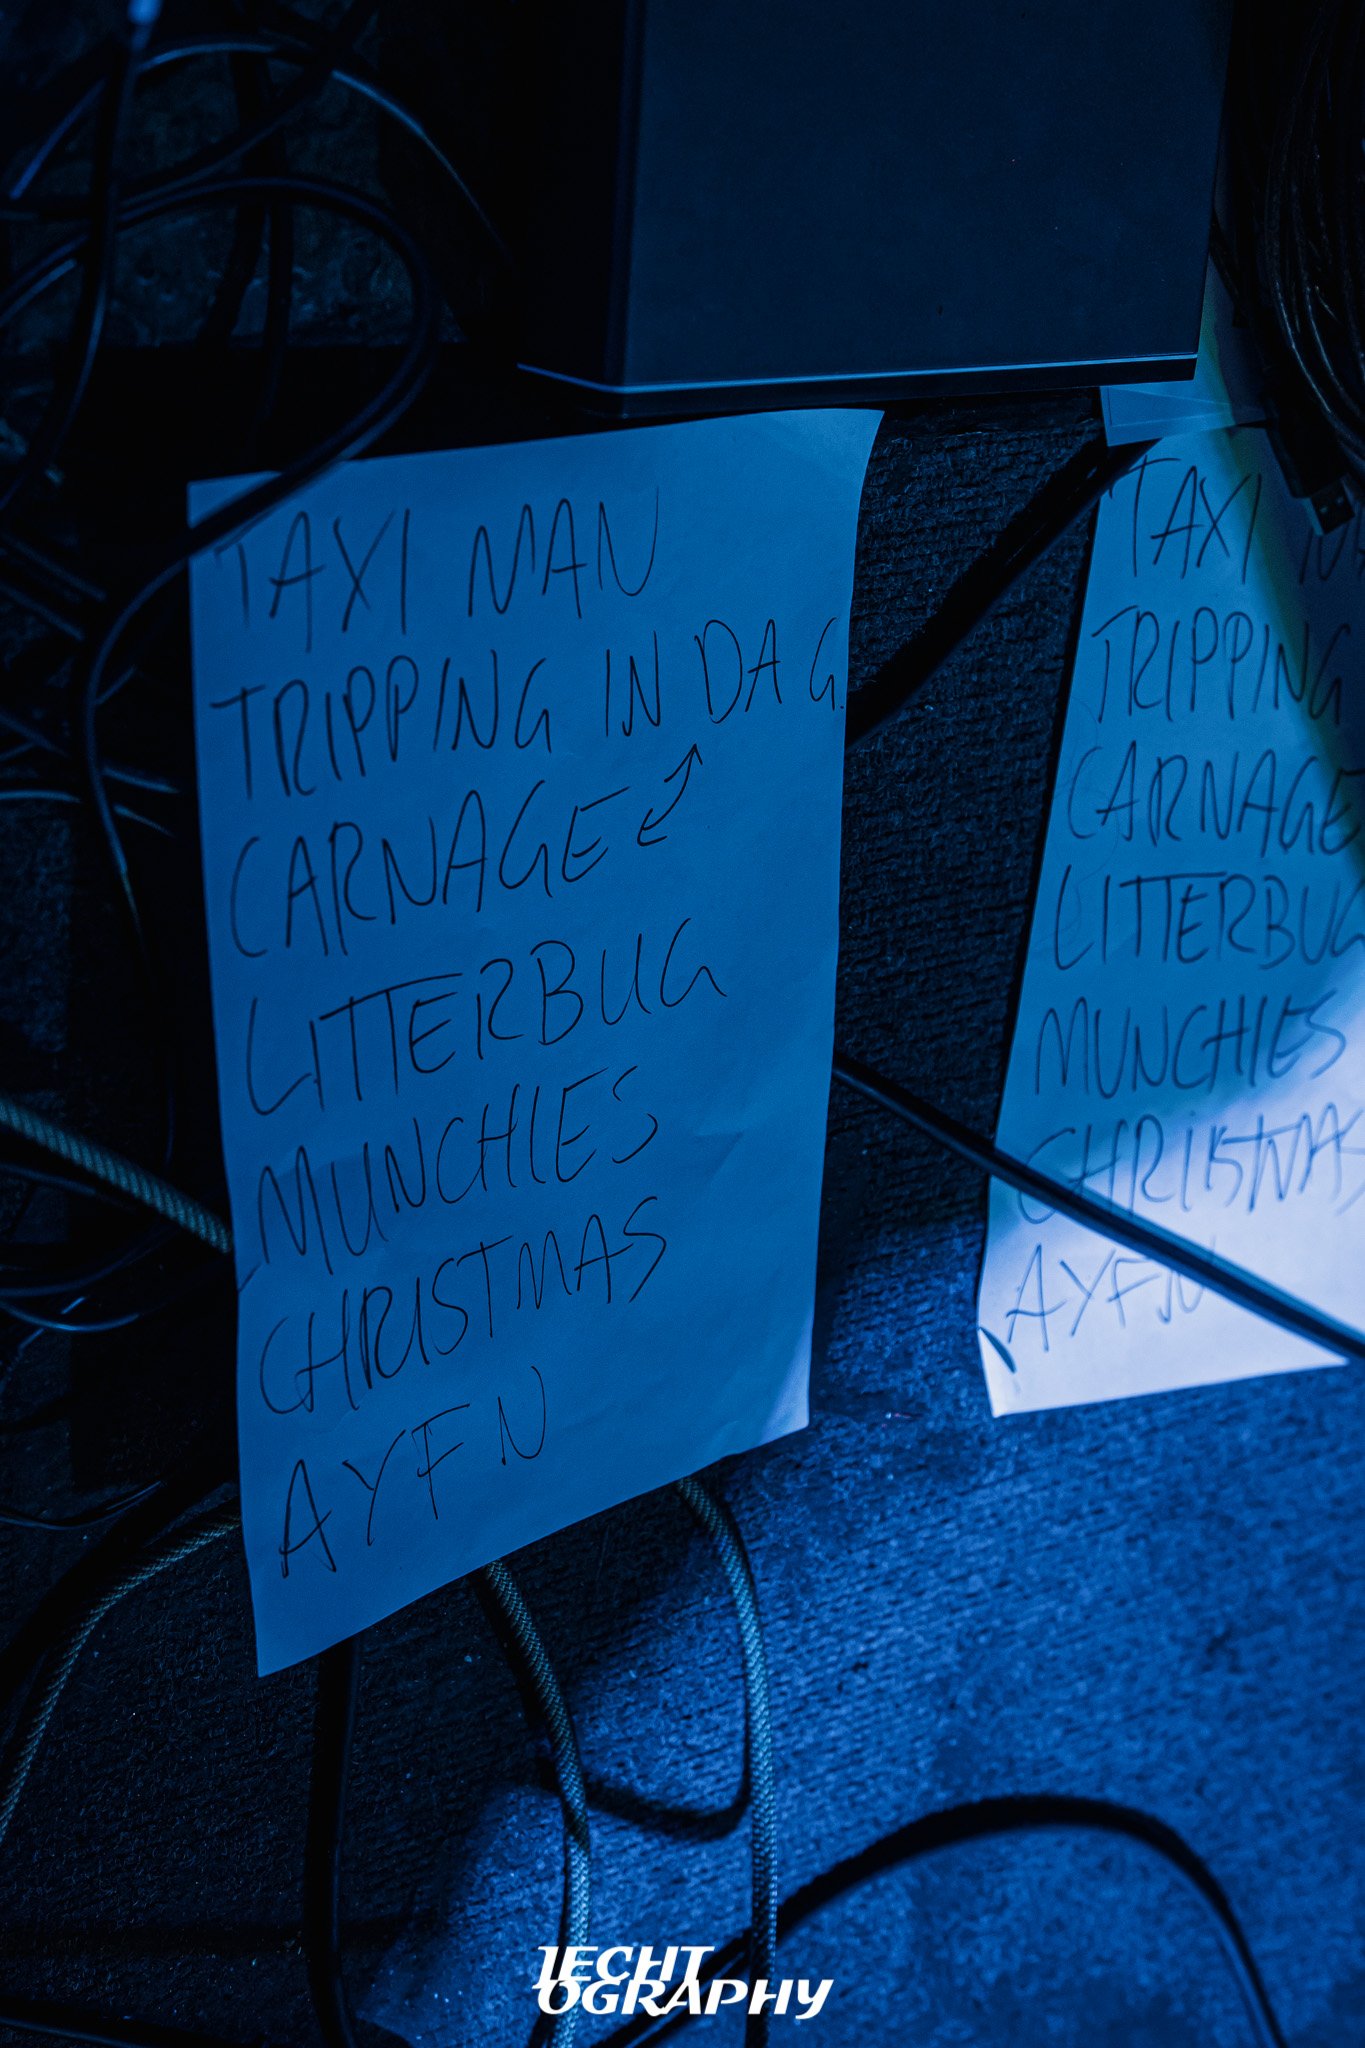 TAXI MAN
TRIPPING IN DA G.
CARNAGE
LITTERBUG
MUNCHIES
CHRISTMAS
AYFN
TAXI
TRIPPING
CARNAGE
LITTERBUG
MUNCHIES
CHRISTMAS
AYFN
1ECHT
OGRAPHY